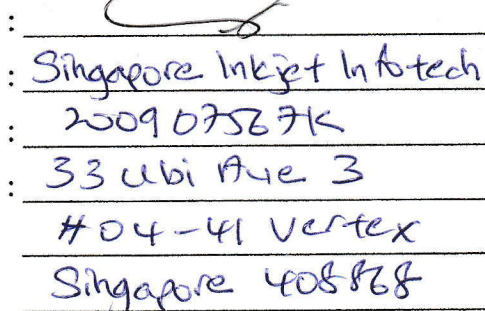 :
: Singapore Inkjet Infotech
: 200907567K
: 33 Ubi Ave 3
#04-41 Vertex
Singapore 408868